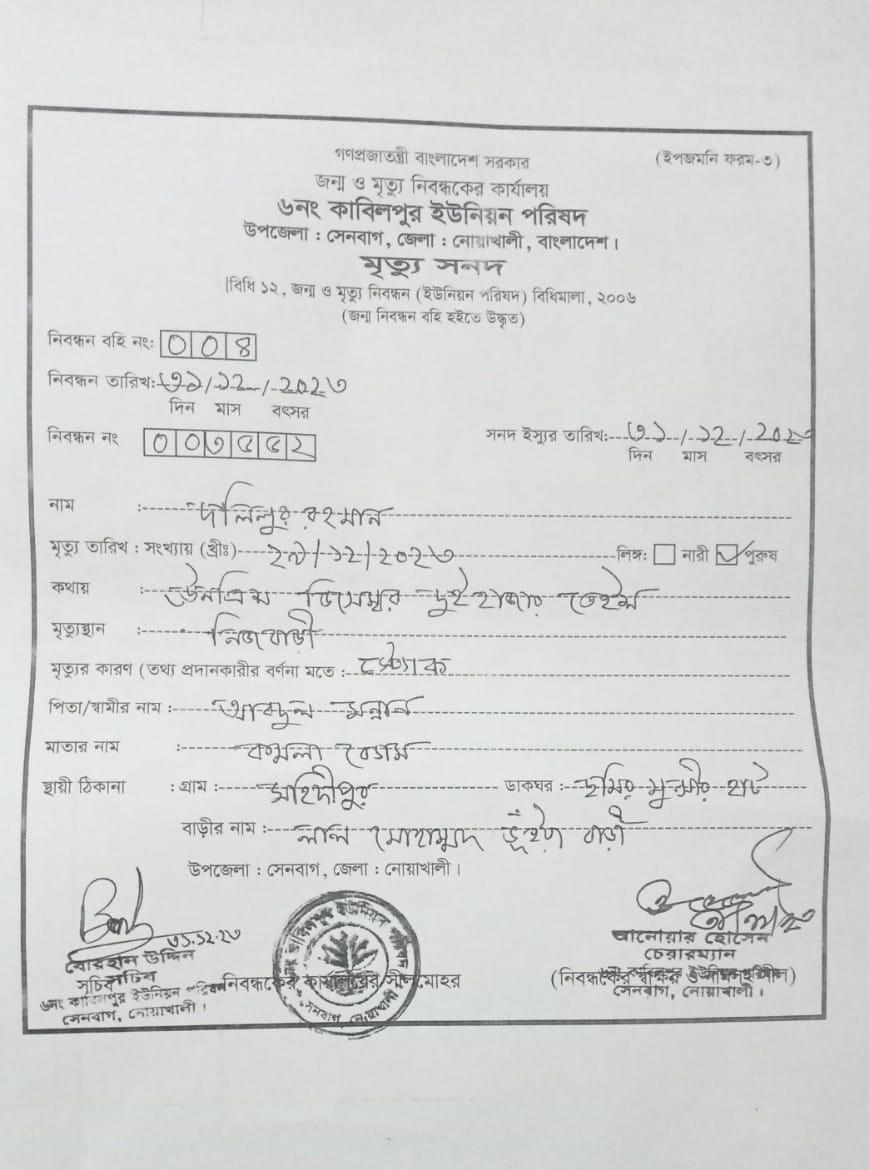 গণপ্রজাতন্ত্রী বাংলাদেশ সরকার
(ইপজমনি ফরম-৩)
জন্ম ও মৃত্যু নিবন্ধকের কার্যালয়
৬নং কাবিলপুর ইউনিয়ন পরিষদ
উপজেলা : সেনবাগ, জেলা : নোয়াখালী, বাংলাদেশ।
মৃত্যু সনদ
[বিধি ১২, জন্ম ও মৃত্যু নিবন্ধন (ইউনিয়ন পরিষদ) বিধিমালা, ২০০৬
(জন্ম নিবন্ধন বহি হইতে উদ্ধৃত)
নিবন্ধন বহি নং: 008
নিবন্ধন তারিখ: ৩১/১২/২০২৩
দিন মাস বৎসর
নিবন্ধন নং ০০৩৫৫২
সনদ ইস্যুর তারিখ: ৩১/১২/২০২৩
দিন মাস বৎসর
নাম : দলিলুর রহমান
মৃত্যু তারিখ : সংখ্যায় (খ্রীঃ) ২৯/১২/২০২৩ লিঙ্গ: নারী পুরুষ
কথায় : উনত্রিশ ডিসেম্বর দুই হাজার তেইশ
মৃত্যুস্থান : নিজ বাড়ী
মৃত্যুর কারণ (তথ্য প্রদানকারীর বর্ণনা মতে : স্ট্রোক
পিতা/স্বামীর নাম : আবদুল মন্নান
মাতার নাম : কমলা বেগম
স্থায়ী ঠিকানা : গ্রাম : মহিদীপুর ডাকঘর : ছমির মুন্সীর হাট
বাড়ীর নাম : লাল মোহাম্মদ ভূঁইয়া বাড়ী
উপজেলা : সেনবাগ, জেলা : নোয়াখালী।
৩১.১২.২৩
বোরহান উদ্দিন
সচিব
৬নং কাবিলপুর ইউনিয়ন পরিষদ
সেনবাগ, নোয়াখালী।
নিবন্ধকের কার্যালয়ের সীলমোহর
কাবিলপুর ইউনিয়ন পরিষদ
সেনবাগ, নোয়াখালী
আনোয়ার হোসেন
চেয়ারম্যান
(নিবন্ধকের স্বাক্ষর ও নামসহ সীল)
সেনবাগ, নোয়াখালী।